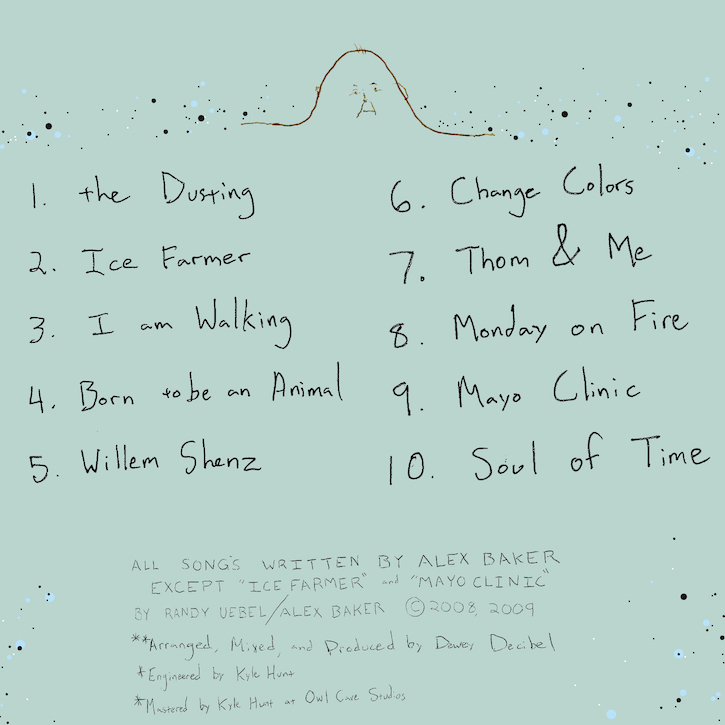 1. the Dusting
2. Ice Farmer
3. I am Walking
4. Born to be an Animal
5. Willem Shenz
6. Change Colors
7. Thom & Me
8. Monday on Fire
9. Mayo Clinic
10. Soul of Time
ALL SONG'S WRITTEN BY ALEX BAKER
EXCEPT "ICE FARMER" and "MAYO CLINIC"
BY RANDY UEBEL/ALEX BAKER © 2008, 2009
**Arranged, Mixed, and Produced by Dewey Decibel
*Engineered by Kyle Hunt
*Mastered by Kyle Hunt at Owl Cave Studios